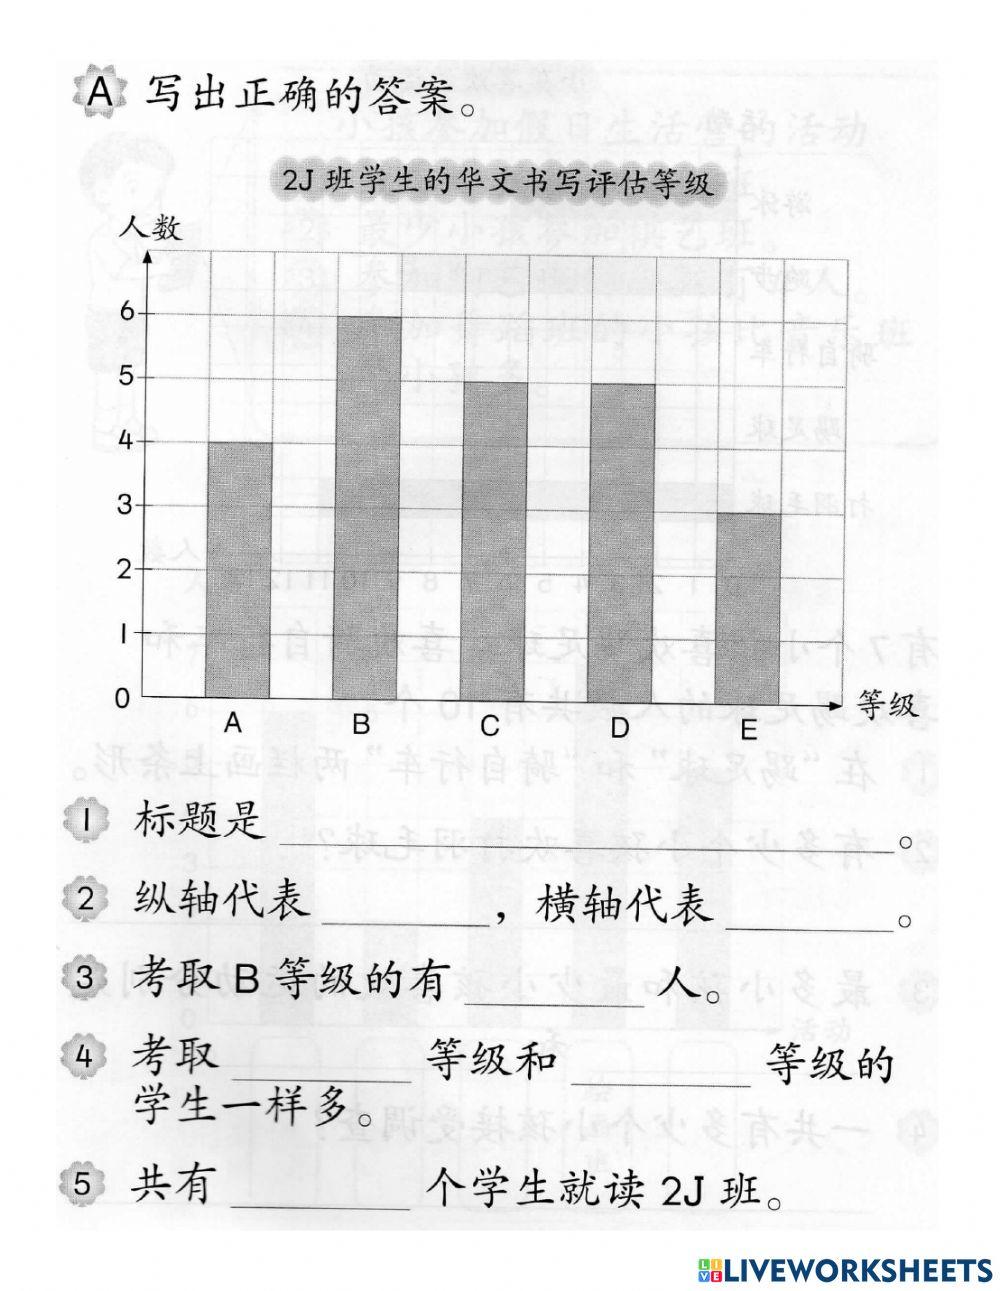 A 写出正确的答案。
2J 班学生的华文书写评估等级
人数
6
5
4
3
2
1
0
等级
A B C D E
1 标题是 ____________。
2 纵轴代表 ________，横轴代表 ________。
3 考取 B 等级的有 ________ 人。
4 考取 ________ 等级和 ________ 等级的
学生一样多。
5 共有 ________ 个学生就读 2J 班。
LIVEWORKSHEETS